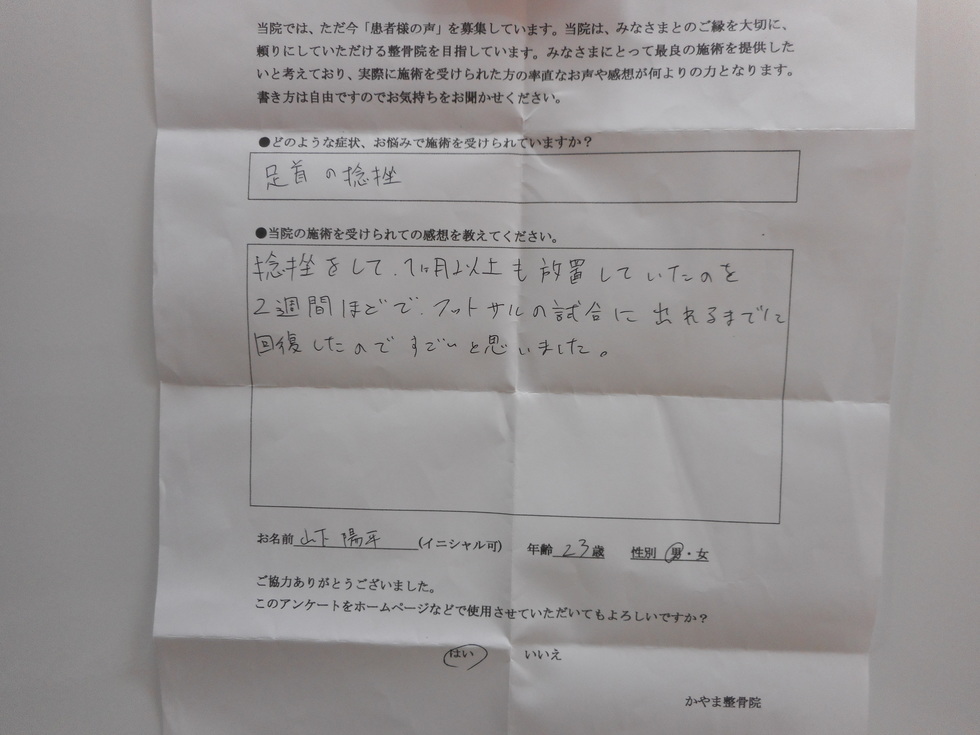 当院では、ただ今「患者様の声」を募集しています。当院は、みなさまとのご縁を大切に、
頼りにしていただける整骨院を目指しています。みなさまにとって最良の施術を提供した
いと考えており、実際に施術を受けられた方の率直なお声や感想が何よりの力となります。
書き方は自由ですのでお気持ちをお聞かせください。
●どのような症状、お悩みで施術を受けられていますか?
足首の捻挫
●当院の施術を受けられての感想を教えてください。
捻挫をして、1ヶ月以上も放置していたのを
2週間ほどで、フットサルの試合に出れるまでに
回復したのですごいと思いました。
お名前 山下 陽平 (イニシャル可) 年齢 23 歳 性別 男・女
ご協力ありがとうございました。
このアンケートをホームページなどで使用させていただいてもよろしいですか?
はい いいえ
かやま整骨院